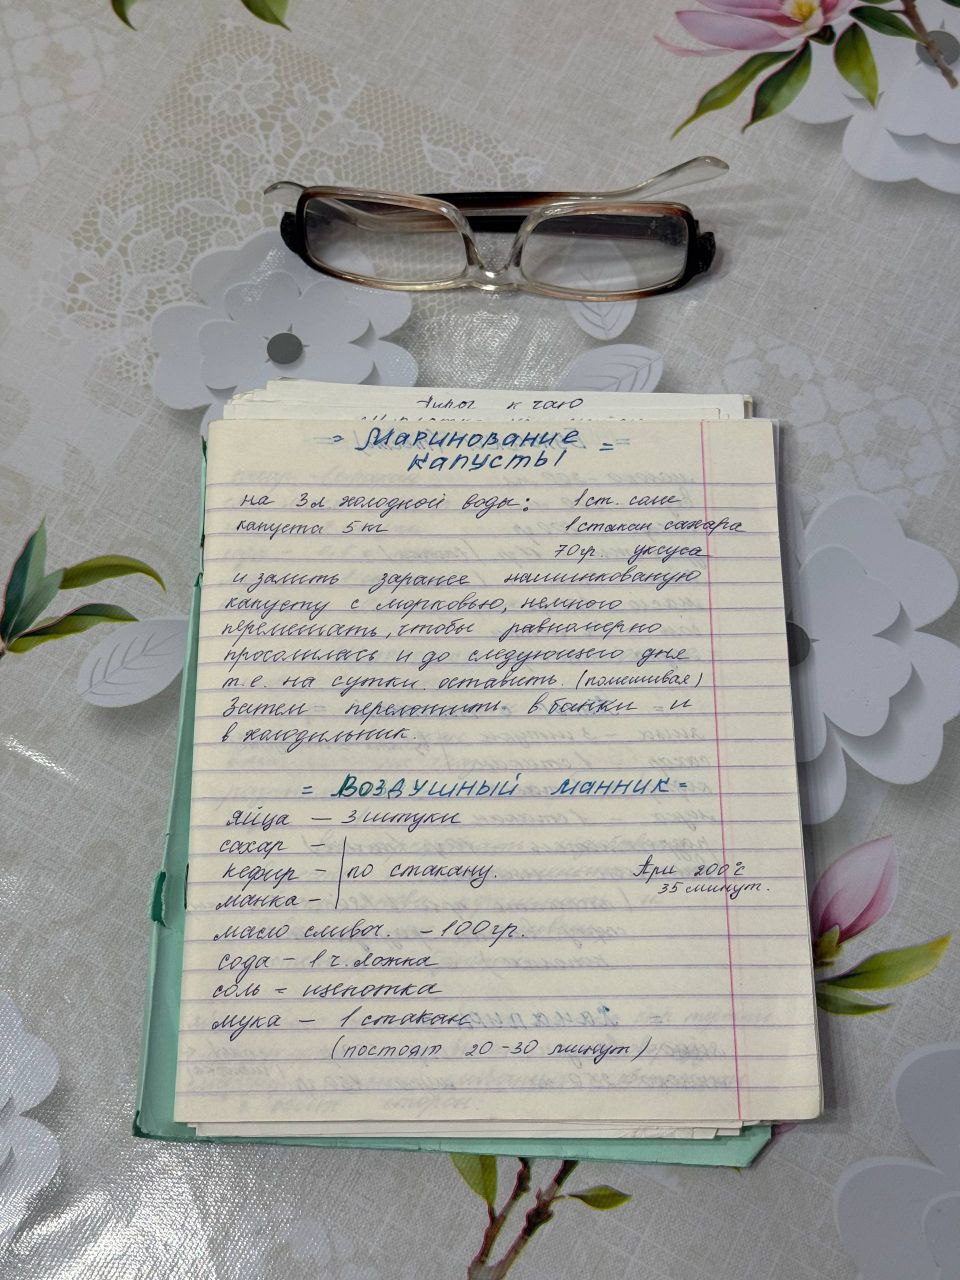 Пирог к чаю
= Маринование =
капусты
на 3л холодной воды: 1 ст. соли
капуста 5 кг 1 стакан сахара
70гр. уксуса
и залить заранее нашинкованую
капусту с морковью, немного
перемешать, чтобы равномерно
просолилась и до следующего дня
т.е. на сутки оставить. (помешивая)
Затем переложить в банки и
в холодильник.
= Воздушный манник =
яйца – 3 штуки
сахар –
кефир – по стакану. При 200°C
манка – 35 минут.
масло сливоч. – 100гр.
сода – 1 ч. ложка
соль – щепотка
мука – 1 стакан
(постоят 20-30 минут)